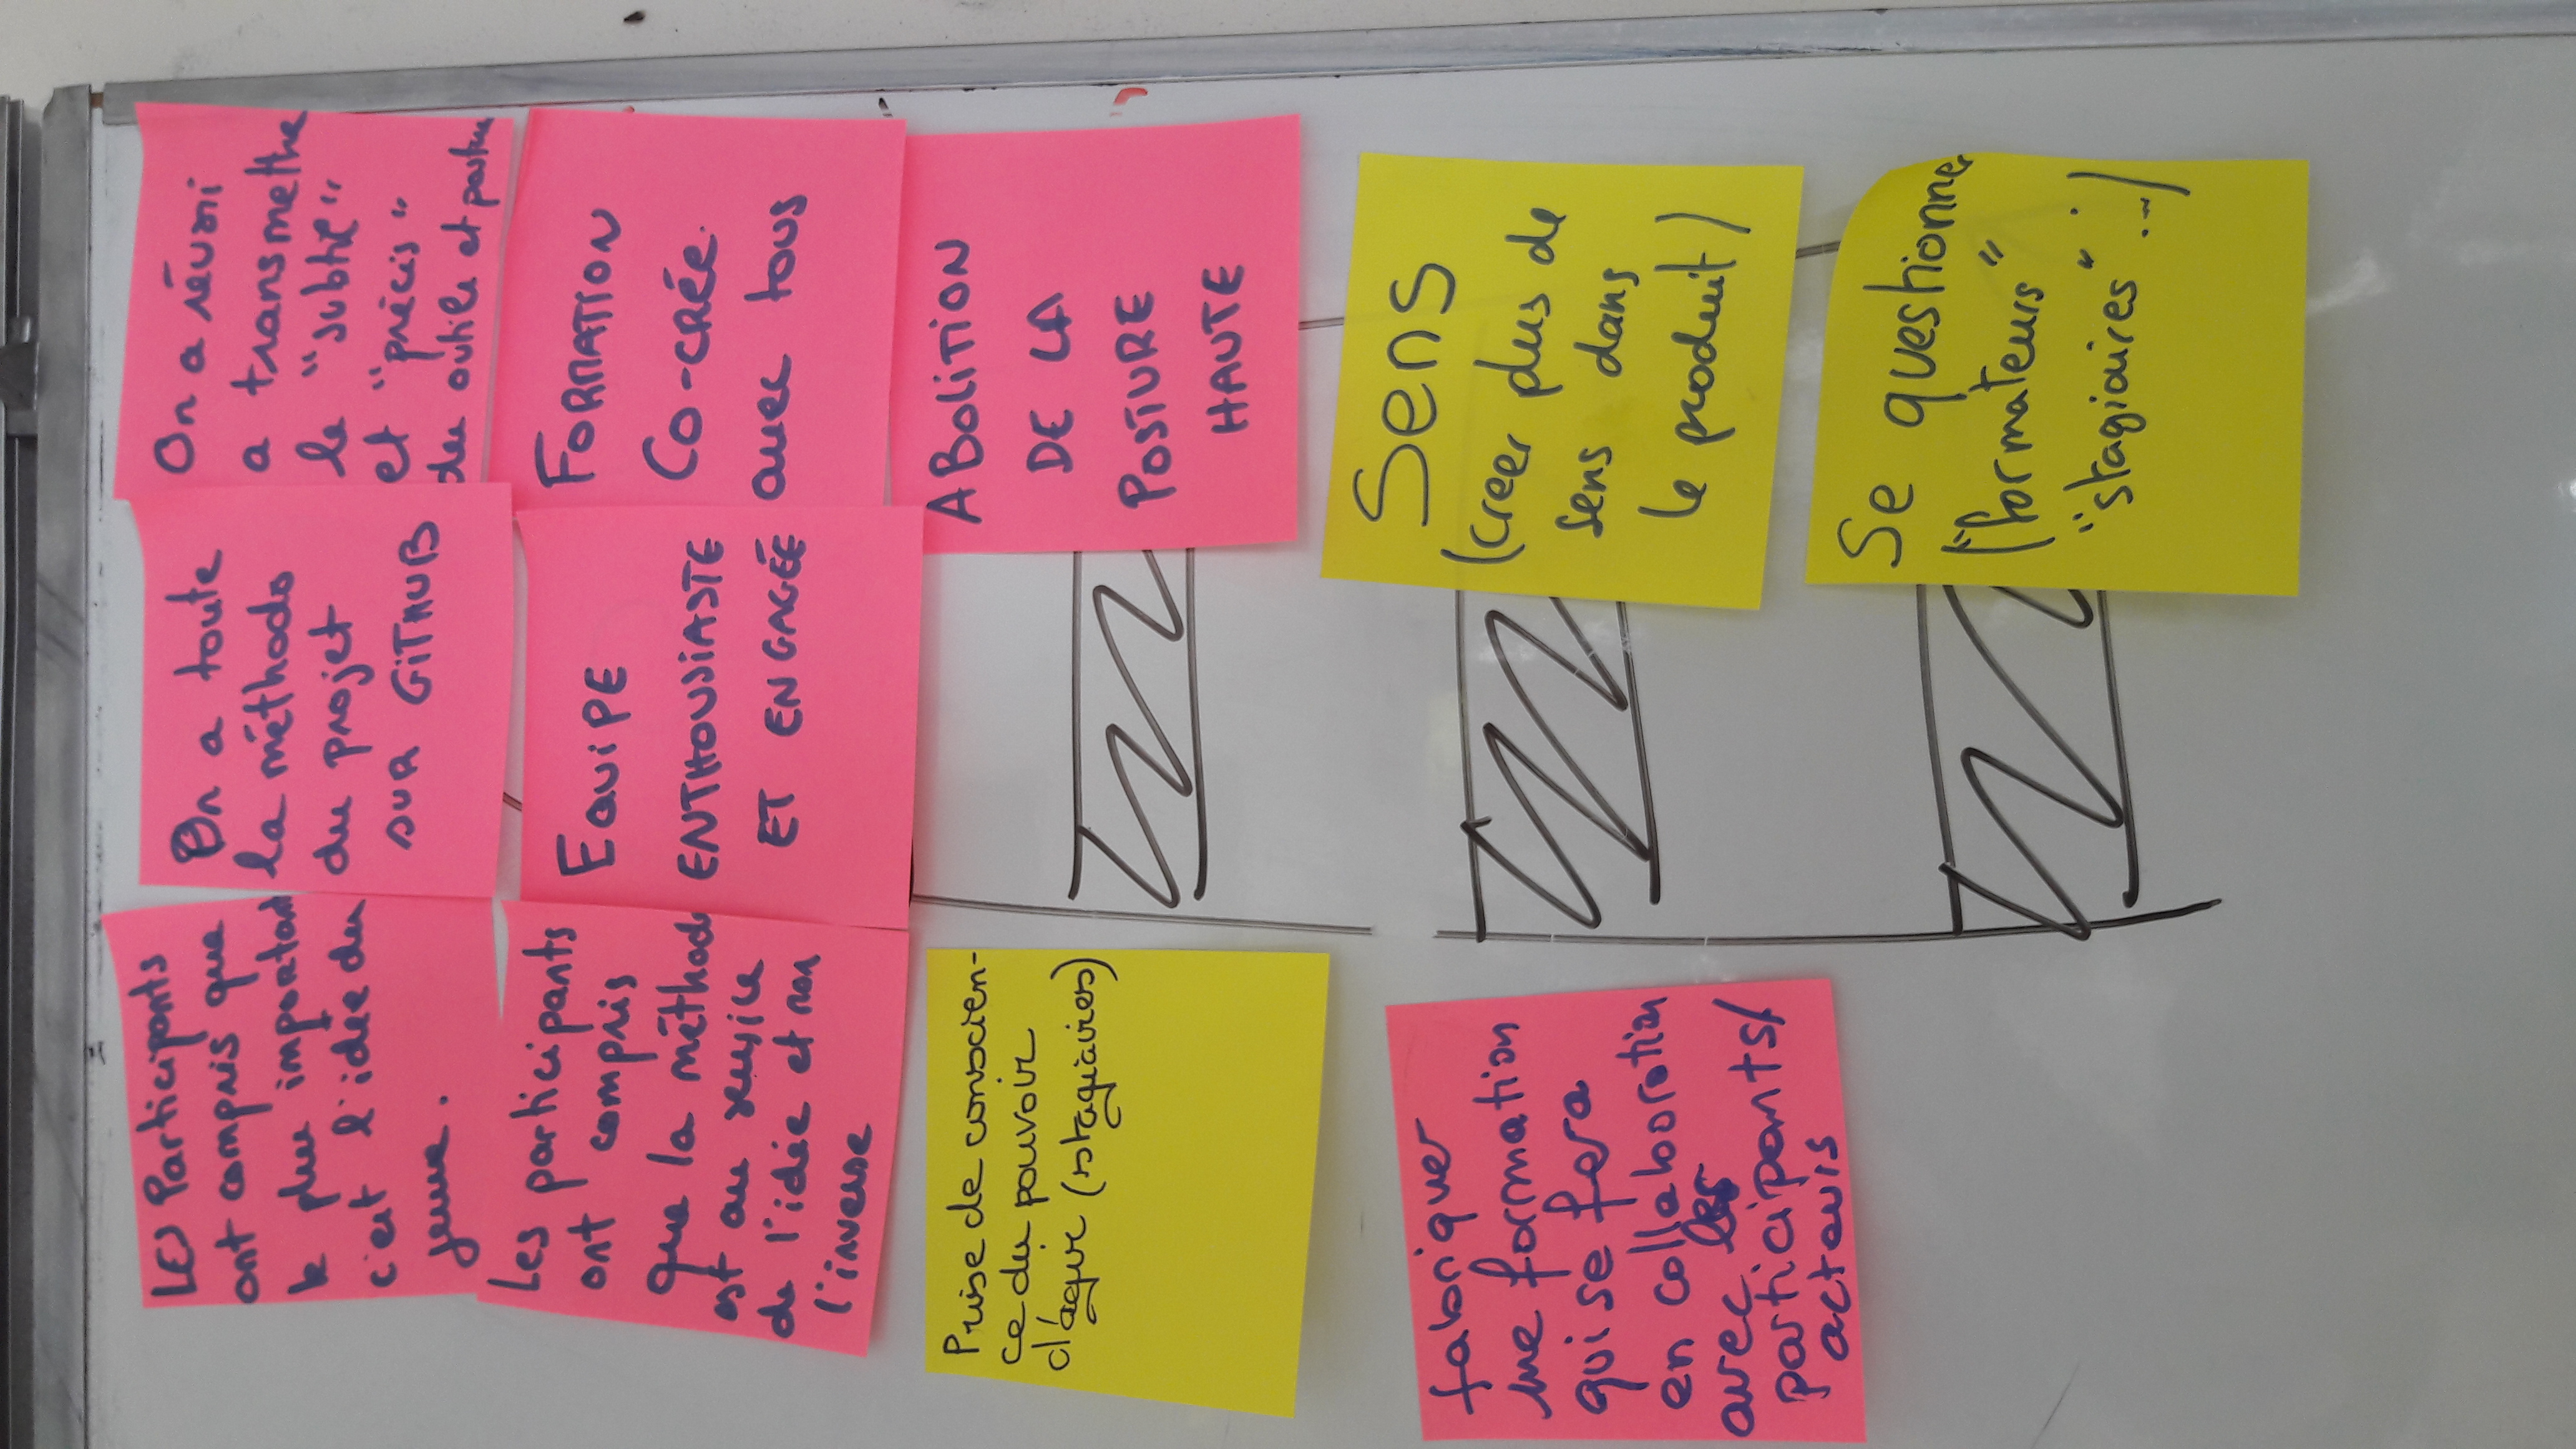 LES Participants
ont compris que
le plus important
c'est l'idée du
jeune.
On a toute
la méthodo
du projet
SUR GITHUB
On a réussi
a transmettre
le "subtil"
et "précis"
des outils et posture
Les participants
ont compris
que la méthode
est au service
de l'idée et non
l'inverse
EQUIPE
ENTHOUSIASTE
ET ENGAGÉE
FORMATION
CO-CRÉE
avec tous
Prise de conscien-
ce du pouvoir
d'agir (stagiaires)
ABOLITION
DE LA
POSTURE
HAUTE
fabriquer
une formation
qui se fera
en collaboration
avec les
participants/
acteurs
Sens
(creer plus de
sens dans
le produit)
Se questionner
("formateurs"
"stagiaires" ...)